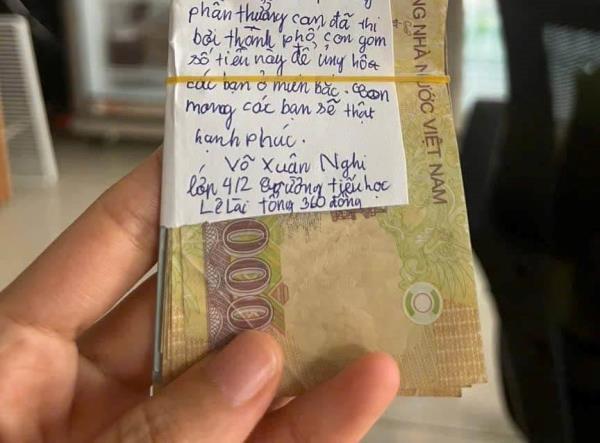 phần thưởng can đã thi
bơi thành phố con gom
số tiền này để ủng hộ
các bạn ở miền Bắc. Con
mong các bạn sẽ thật
hạnh phúc.
Võ Xuân Nghi
lớp 4/2 trường tiểu học
Lê Lai tổng 360 đồng
NG NHÀ NƯỚC VIỆT NAM
000